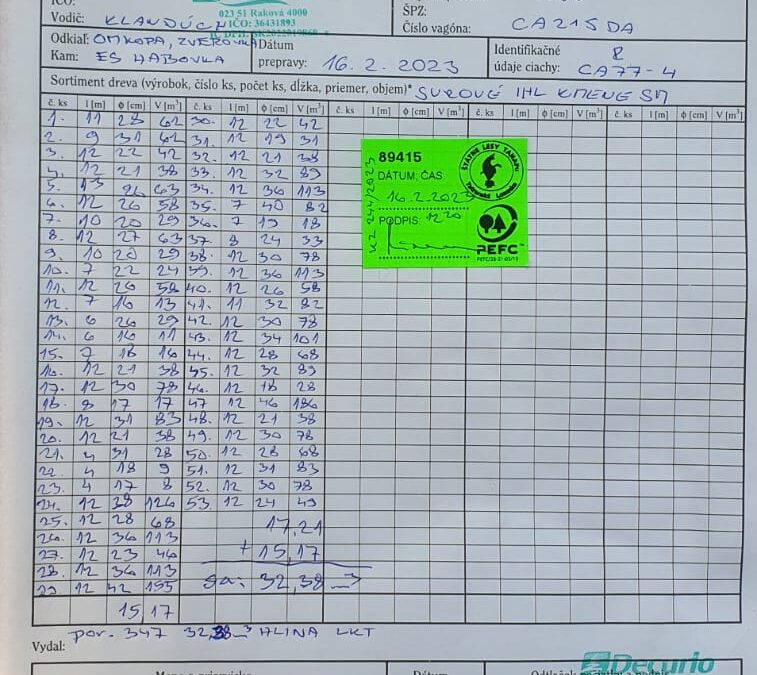 IČO:
Vodič: KLANDÚCH
023 51 Raková 4000
IČO: 36431893
ŠPZ:
Číslo vagóna: CA215DA
Odkiaľ: OM KOPA, ZVEROVKA
Kam: ES HABOVKA
Dátum
prepravy: 16. 2. 2023
Identifikačné
údaje ciachy: CA77-4
Sortiment dreva (výrobok, číslo ks, počet ks, dĺžka, priemer, objem)* SUROVÉ IHL KMENE SM
č. ks l [m] ϕ [cm] V [m³] č. ks l [m] ϕ [cm] V [m³] č. ks l [m] ϕ [cm] V [m³] č. ks l [m] ϕ [cm] V [m³] č. ks l [m] ϕ [cm] V [m³]
1. 11 28 62 30. 12 22 42
2. 9 31 62 31. 12 19 31
3. 12 22 42 32. 12 21 38
4. 12 21 38 33. 12 32 89
5. 13 26 63 34. 12 36 113
6. 12 26 58 35. 7 40 82
7. 10 20 29 36. 7 19 18
8. 12 27 63 37. 8 24 33
9. 10 20 29 38. 12 30 78
10. 7 22 24 39. 12 36 113
11. 12 26 58 40. 12 26 58
12. 7 16 13 41. 11 32 82
13. 6 26 29 42. 12 30 78
14. 6 16 11 43. 12 34 101
15. 7 18 16 44. 12 28 68
16. 12 21 38 45. 12 32 89
17. 12 30 78 46. 12 18 28
18. 8 17 17 47 12 46 186
19. 12 31 83 48. 12 21 38
20. 12 21 38 49. 12 30 78
21. 4 31 28 50. 12 28 68
22. 4 18 9 51. 12 31 83
23. 4 17 8 52. 12 30 78
24. 12 38 126 53. 12 24 49
25. 12 28 68 17,21
26. 12 36 113
27. 12 23 46 + 15,17
28. 12 36 113
29 12 42 155 32,38
15,17
89415
DÁTUM, ČAS
16.2.2023
PODPIS: 12 20
KZ 244/2023
ŠTÁTNE LESY TANAPU
Tatranská Lomnica
PEFC
por. 347 HLINA LKT
Vydal:
Decurio
Dátum